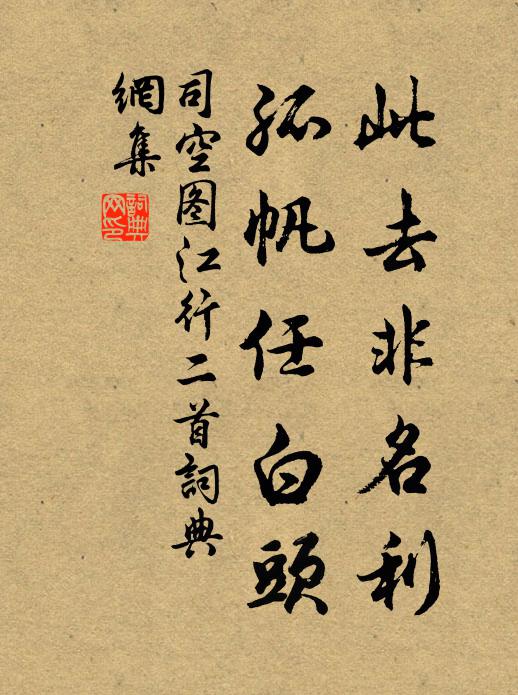 此去非名利
孤帆任白頭
司空图江行二首詞典
網集
詞典网印